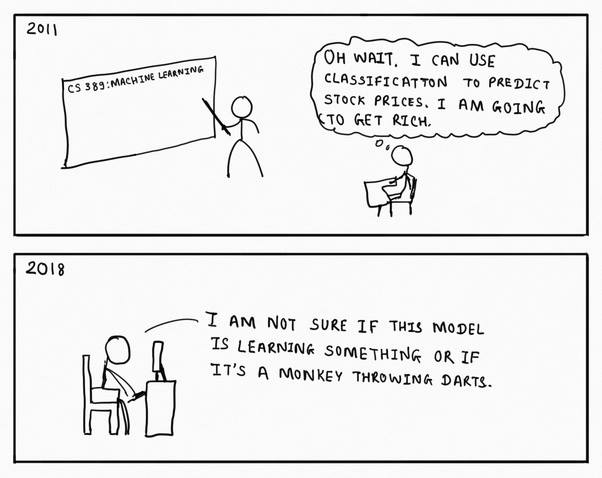 2011
CS 389: MACHINE LEARNING
OH WAIT. I CAN USE
CLASSIFICATION TO PREDICT
STOCK PRICES. I AM GOING
TO GET RICH.
2018
I AM NOT SURE IF THIS MODEL
IS LEARNING SOMETHING OR IF
IT'S A MONKEY THROWING DARTS.